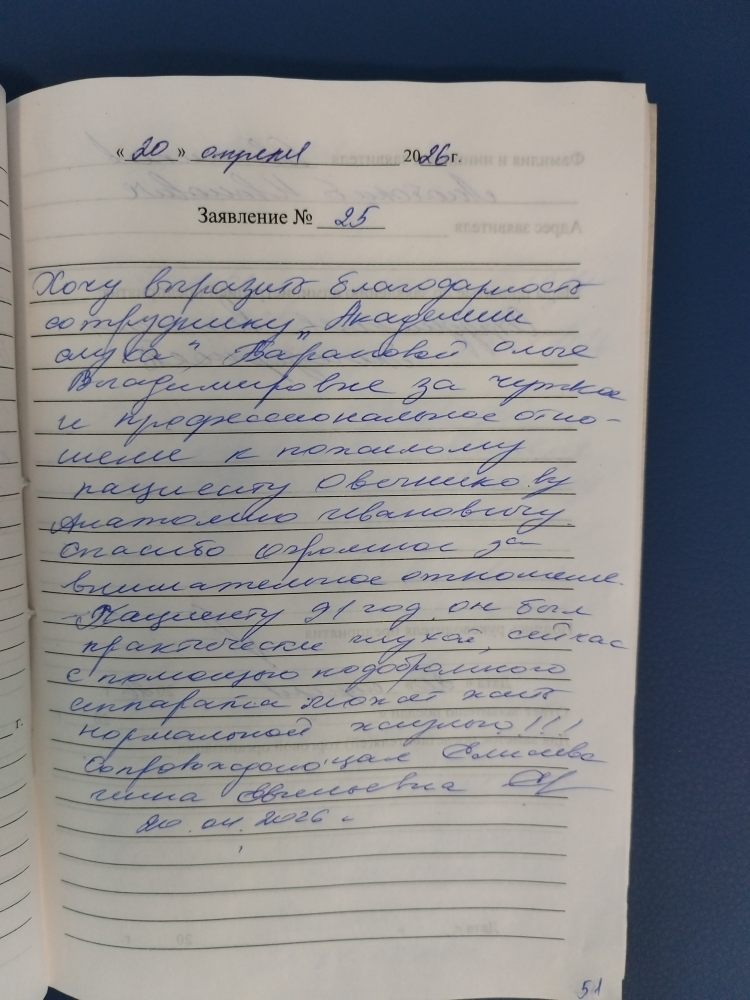 « 20 » апреля 2026 г.
Заявление № 25
Хочу выразить благодарность
сотруднику „Академии
слуха" Барановой Ольге
Владимировне за чуткое
и профессиональное отно-
шение к пожилому
пациенту Овечникову
Анатолию Ивановичу.
Спасибо огромное за
внимательное отношение.
Пациенту 91 год он был
практически глухой, сейчас
с помощью подобранного
аппарата может жить
нормальной жизнью!!!
Сопровождающая Елисеева
Евгеньевна
20.04.2026 г
г.
51